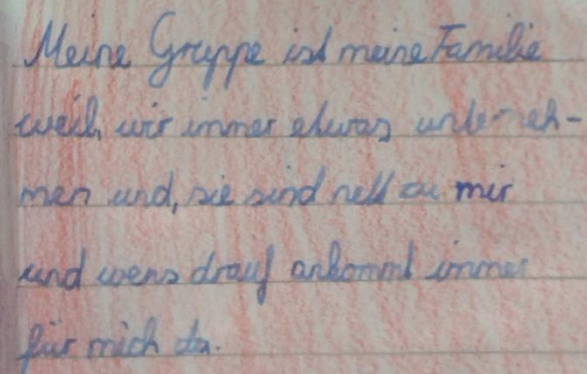 Meine Gruppe ist meine Familie
weil, wir immer etwas unterneh-
men und, sie sind nett zu mir
und wens drauf ankommt immer
für mich da.